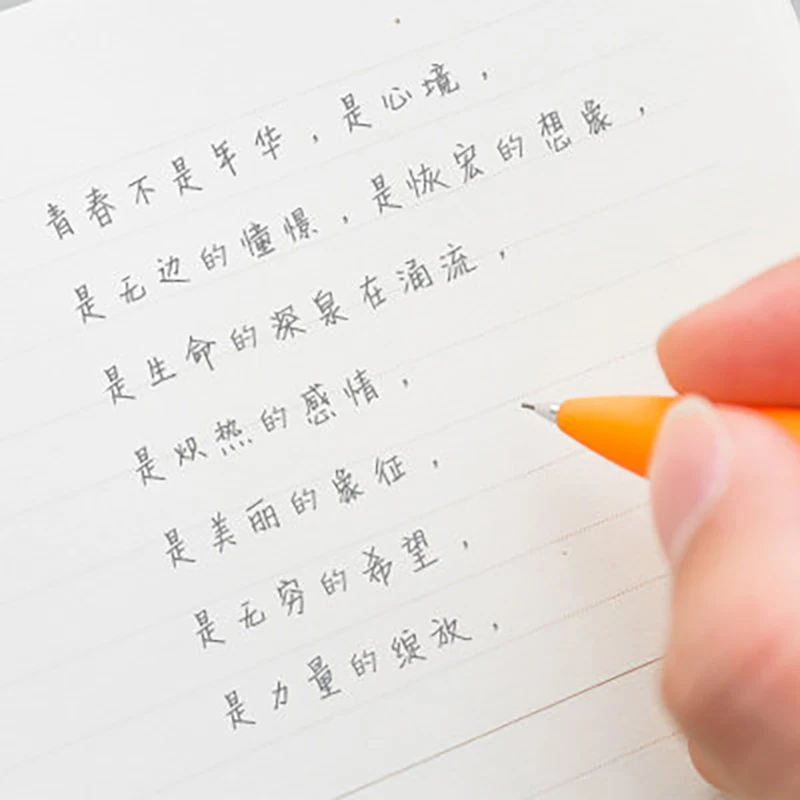 青春不是年华，是心境，
是无边的憧憬，是恢宏的想象，
是生命的深泉在涌流，
是炽热的感情，
是美丽的象征，
是无穷的希望，
是力量的绽放，